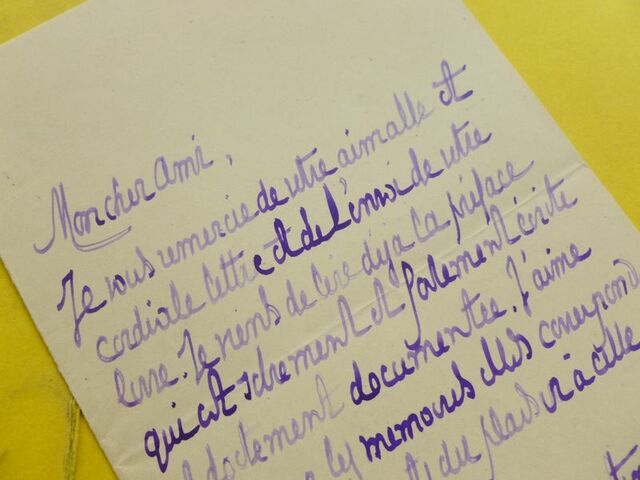 Mon cher Ami,
Je vous remercie de votre aimable et
cordiale lettre et de l'envoi de votre
livre. Je viens de lire déjà la préface
qui est sobrement et fortement écrite
et doctement documentée. J'aime
les mémoires elles correspond
du plaisir à celle